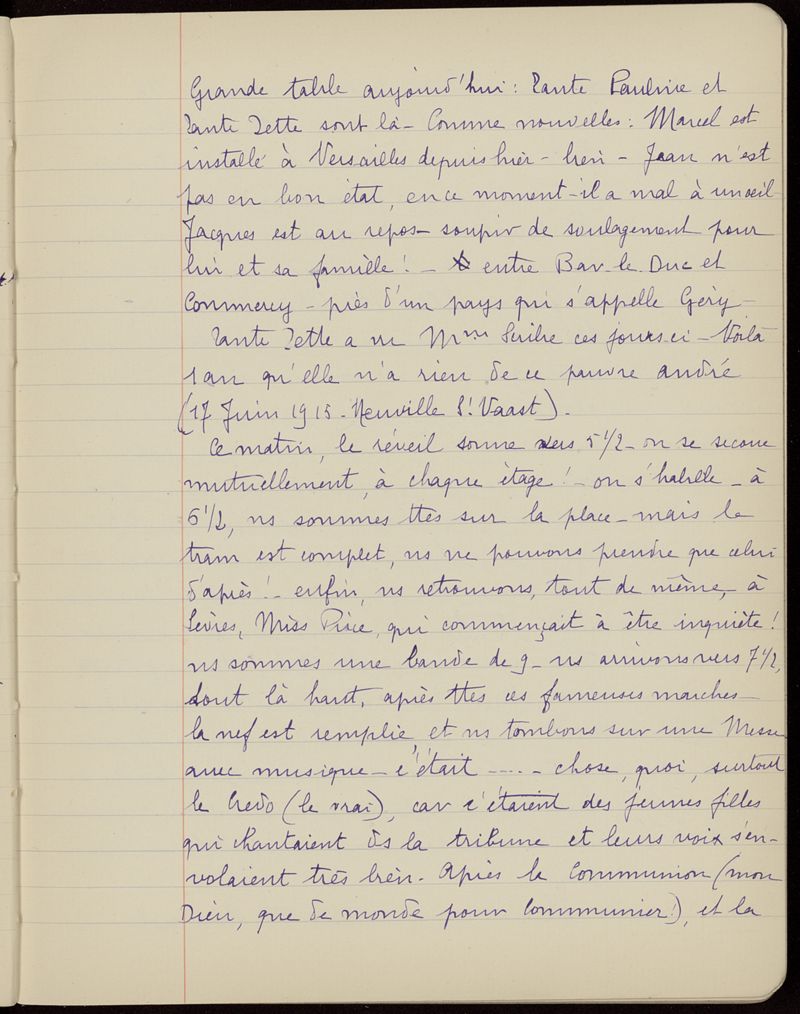 Grande table aujourd'hui : Tante Pauline et
Tante Zette sont là - Comme nouvelles : Marcel est
installé à Versailles depuis hier - bien - Jean n'est
pas en bon état, en ce moment - il a mal à un œil -
Jacques est au repos - soupir de soulagement pour
lui et sa famille ! - entre Bar-le-Duc et
Commercy - près d'un pays qui s'appelle Géry -
Tante Zette a vu Mme Scribe ces jours-ci - Voilà
1 an qu'elle n'a rien de ce pauvre André
(17 Juin 1915 - Neuville St Vaast).
Ce matin, le réveil sonne vers 5 1/2 - on se secoue
mutuellement, à chaque étage ! - on s'habille - à
6 1/2, ns sommes ttes sur la place - mais le
tram est complet, ns ne pouvons prendre que celui
d'après ! - enfin, ns retrouvons, tout de même, à
Sèvres, Miss Price, qui commençait à être inquiète !
ns sommes une bande de 9 - ns arrivons vers 7 1/2,
tout là haut, après ttes ces fameuses marches -
la nef est remplie, et ns tombons sur une Messe
avec musique - c'était ..... chose, quoi, surtout
le Credo (le vrai), car c'étaient des jeunes filles
qui chantaient ds la tribune et leurs voix s'en-
volaient très bien. Après la Communion (mon
Dieu, que de monde pour communier !), et la